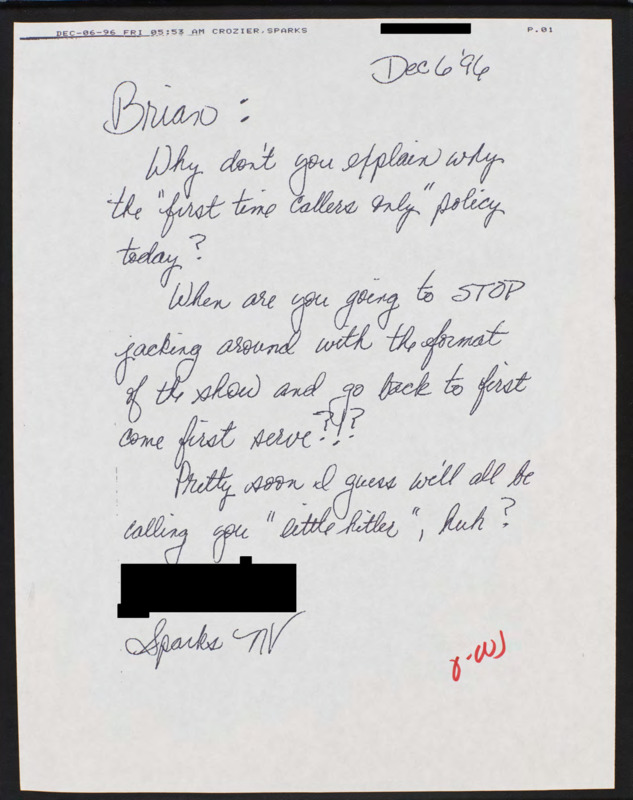 DEC-06-96 FRI 05:53 AM CROZIER.SPARKS P.01
Dec 6 '96
Brian:
Why don't you explain why
the "first time callers only" policy
today?
When are you going to STOP
jacking around with the format
of the show and go back to first
come first serve?!?
Pretty soon I guess we'll all be
calling you "little hitler", huh?
Sparks NV